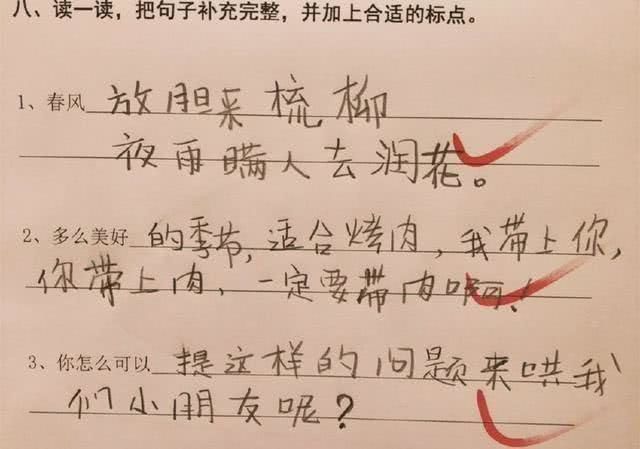 八、读一读，把句子补充完整，并加上合适的标点。
1、春风 放胆来梳柳
夜雨瞒人去润花。
2、多么美好 的季节,适合烤肉,我带上你,
你带上肉,一定要带肉啊!
3、你怎么可以 提这样的问题来哄我
们小朋友呢?